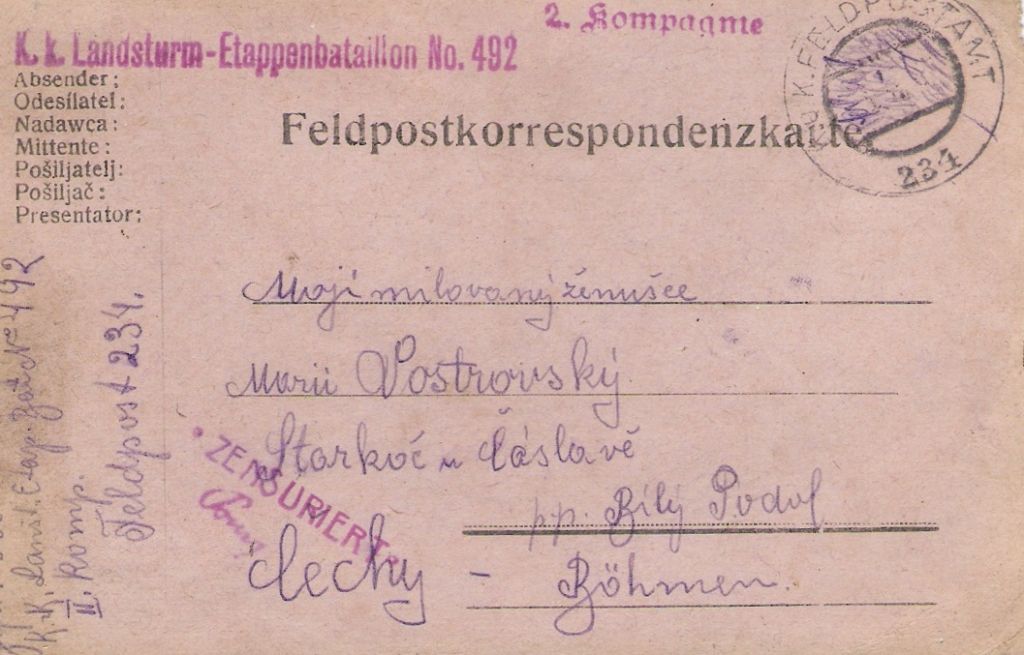 2. Kompagnie
K. k. Landsturm-Etappenbataillon No. 492
K.u.K. FELDPOSTAMT
234
Absender:
Odesílatel:
Nadawca:
Mittente:
Pošiljatelj:
Pošiljač:
Presentator:
Feldpostkorrespondenzkarte.
Moji milovaný ženušce
Marii Vostrovský
Starkoč u Čáslavě
ZENSURIERT
pp. Bílý Podol
Čechy - Böhmen.
K. K. Landst. Etap. Bat. No 492
II. Komp.
Feldpost 234.